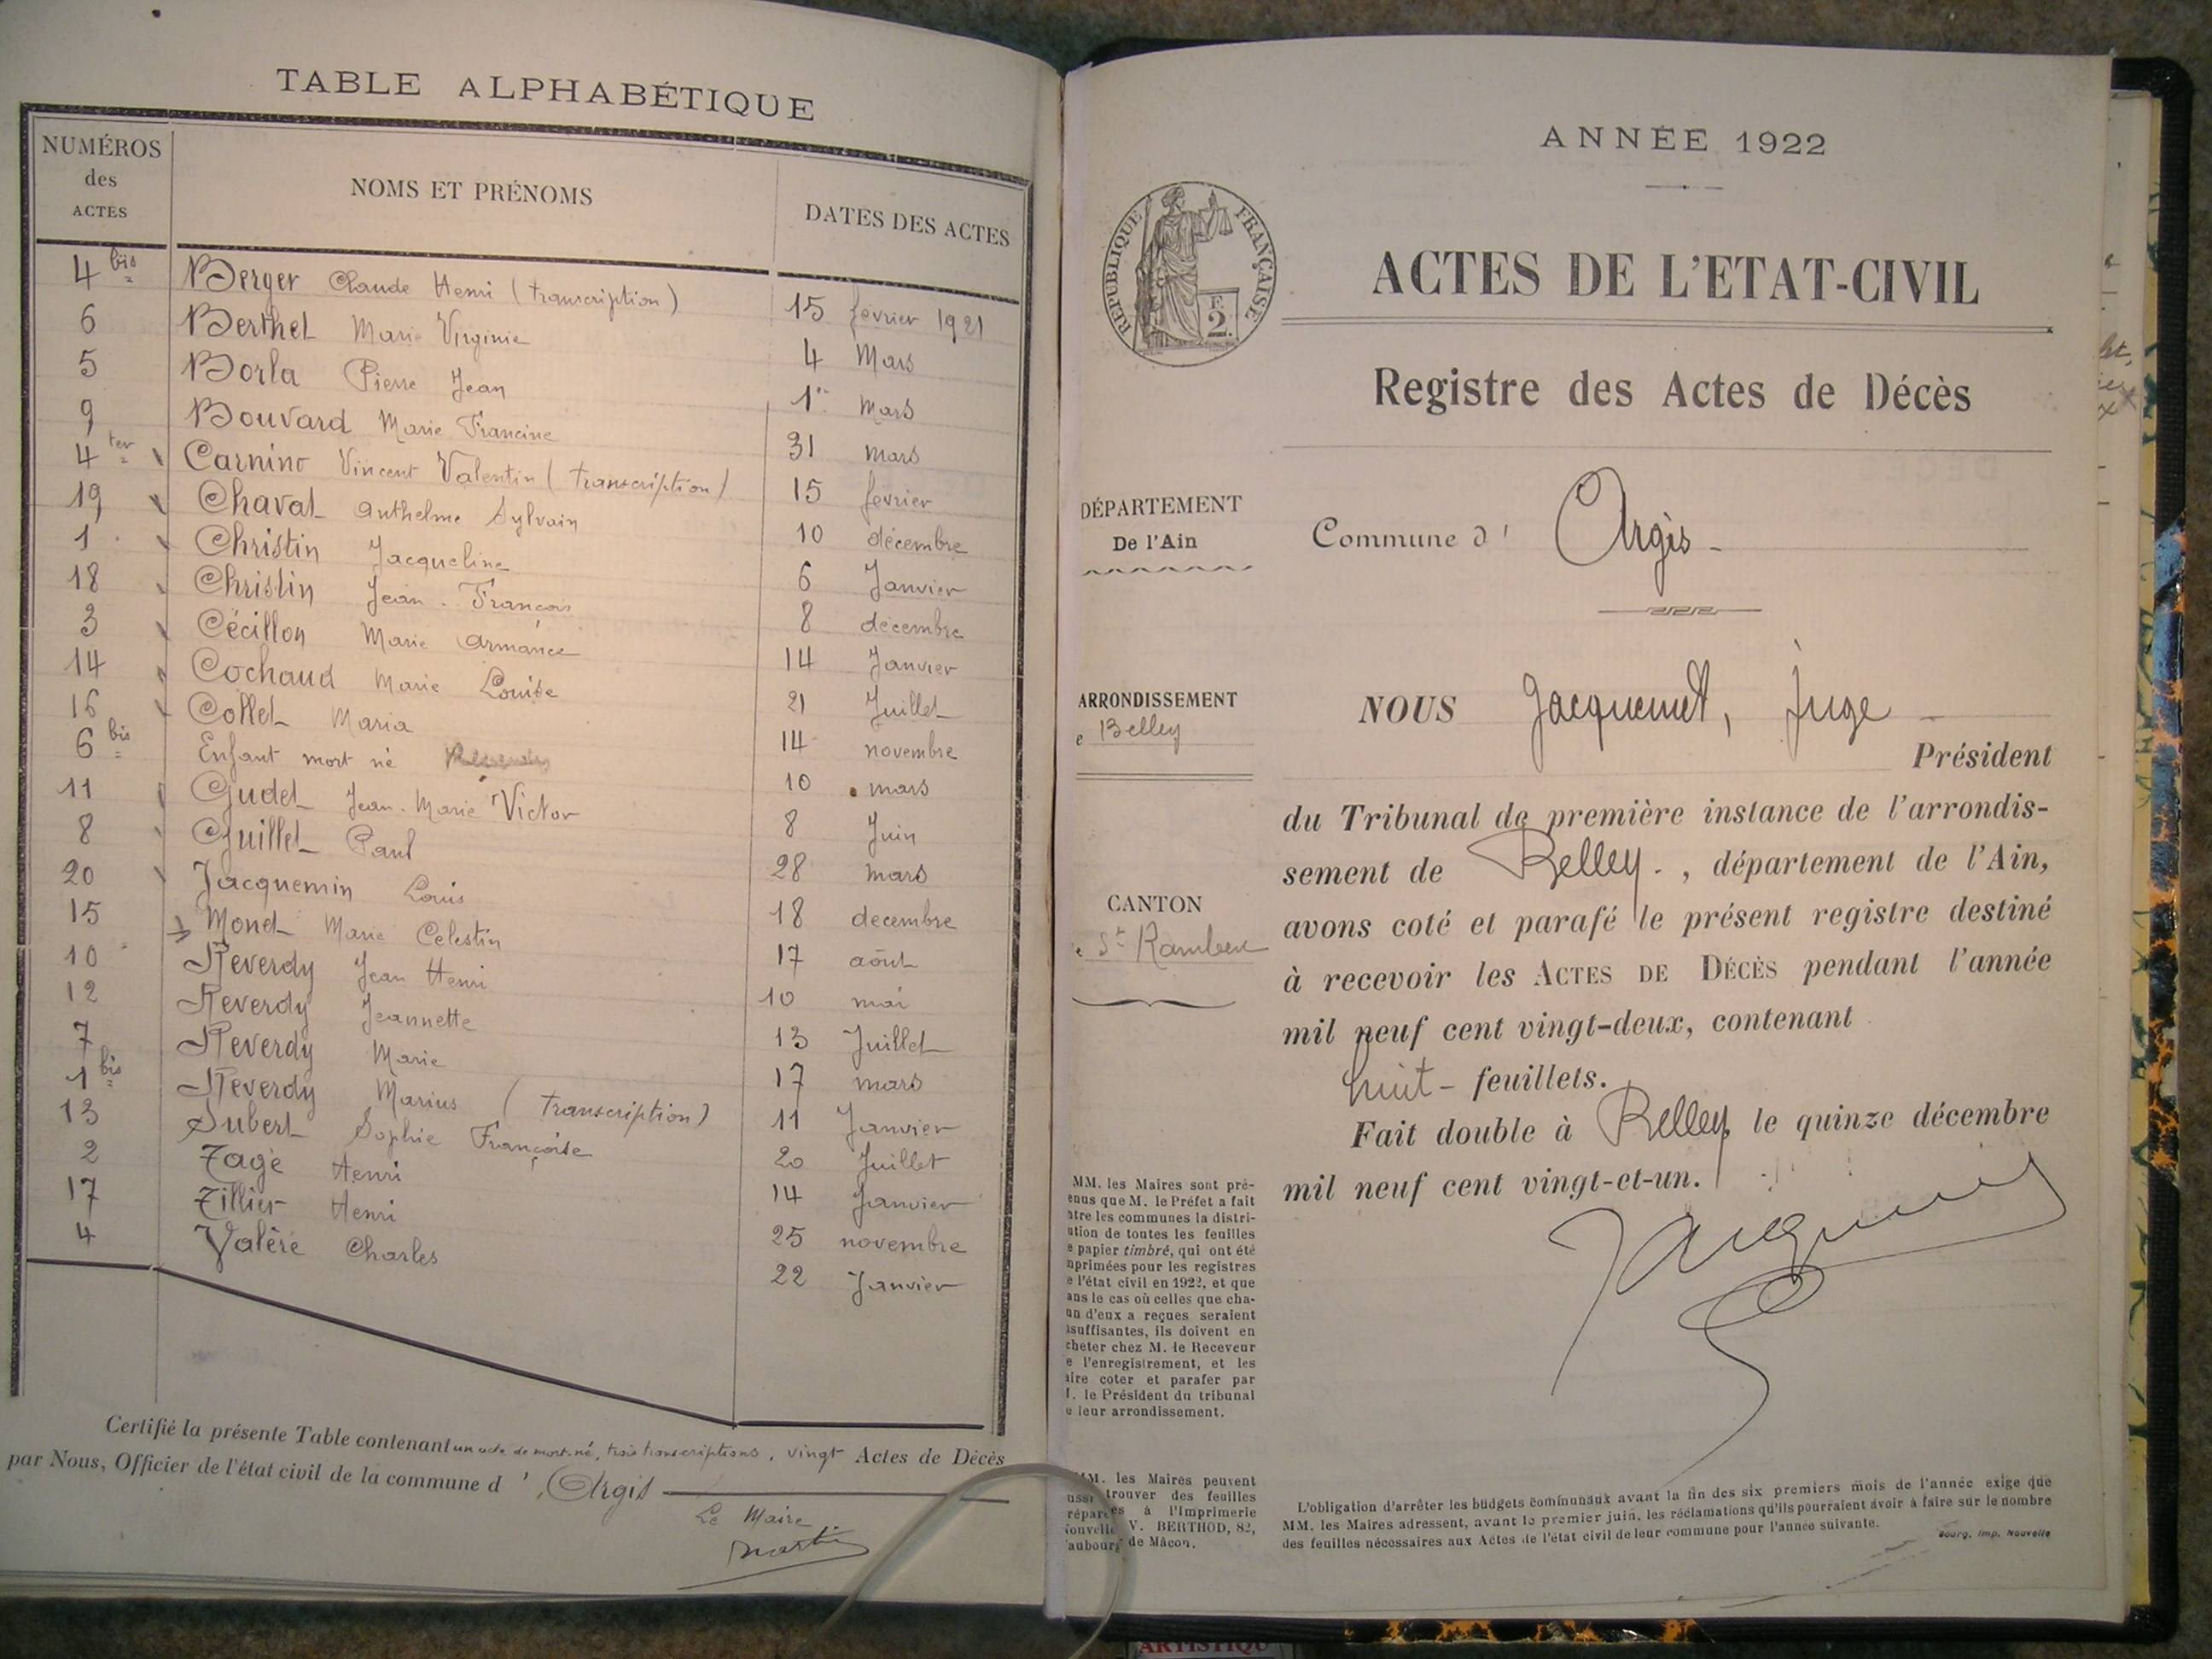 TABLE ALPHABÉTIQUE
NUMÉROS des ACTES NOMS ET PRÉNOMS DATES DES ACTES
4 bis Berger Claude Henri (transcription) 15 février 1921
6 Berthet Marie Virginie 4 Mars
5 Borla Pierre Jean 1er Mars
9 Bouvard Marie Francine 31 mars
4 ter Carnino Vincent Valentin (transcription) 15 février
19 Chavat Anthelme Sylvain 10 décembre
1 Christin Jacqueline 6 Janvier
18 Christin Jean-François 8 décembre
3 Cécillon Marie Armance 14 Janvier
14 Cochaud Marie Louise 21 Juillet
16 Collet Maria 14 novembre
6 bis Enfant mort né 10 mars
11 Gudet Jean-Marie Victor 8 Juin
8 Guillet Paul 28 mars
20 Jacquemin Louis 18 decembre
15 Mond Marie Celestin 17 août
10 Reverdy Jean Henri 10 mai
12 Reverdy Jeannette 13 Juillet
7 Reverdy Marie 17 mars
1 bis Reverdy Marius (transcription) 11 Janvier
13 Subert Sophie Françoise 20 Juillet
2 Tagé Henri 14 Janvier
17 Tillier Henri 25 novembre
4 Valéré Charles 22 Janvier
Certifié la présente Table contenant un acte de mort-né, trois transcriptions, vingt Actes de Décès
par Nous, Officier de l'état civil de la commune d'Argis
Le Maire
Martin
ANNÉE 1922
RÉPUBLIQUE FRANÇAISE
2
ACTES DE L'ETAT-CIVIL
Registre des Actes de Décès
DÉPARTEMENT
De l'Ain
Commune d' Argis
ARRONDISSEMENT
e Belley
NOUS Jacquemet, juge
Président
du Tribunal de première instance de l'arrondis-
sement de Belley., département de l'Ain,
CANTON
e St Rambert
avons coté et parafé le présent registre destiné
à recevoir les ACTES DE DÉCÈS pendant l'année
mil neuf cent vingt-deux, contenant
huit feuillets.
Fait double à Belley le quinze décembre
mil neuf cent vingt-et-un.
MM. les Maires sont pré-
enus que M. le Préfet a fait
ntre les communes la distri-
ution de toutes les feuilles
e papier timbré, qui ont été
mprimées pour les registres
e l'état civil en 1922, et que
ans le cas où celles que cha-
un d'eux a reçues seraient
nsuffisantes, ils doivent en
cheter chez M. le Receveur
e l'enregistrement, et les
aire coter et parafer par
M. le Président du tribunal
e leur arrondissement.
MM. les Maires peuvent
ussi trouver des feuilles
réparées à l'Imprimerie
Nouvelle V. BERTHOD, 82,
faubourg de Mâcon.
L'obligation d'arrêter les budgets communaux avant la fin des six premiers mois de l'année exige que
MM. les Maires adressent, avant le premier juin, les réclamations qu'ils pourraient avoir à faire sur le nombre
des feuilles nécessaires aux Actes de l'état civil de leur commune pour l'année suivante.
Bourg, Imp. Nouvelle
ARTISTIQU